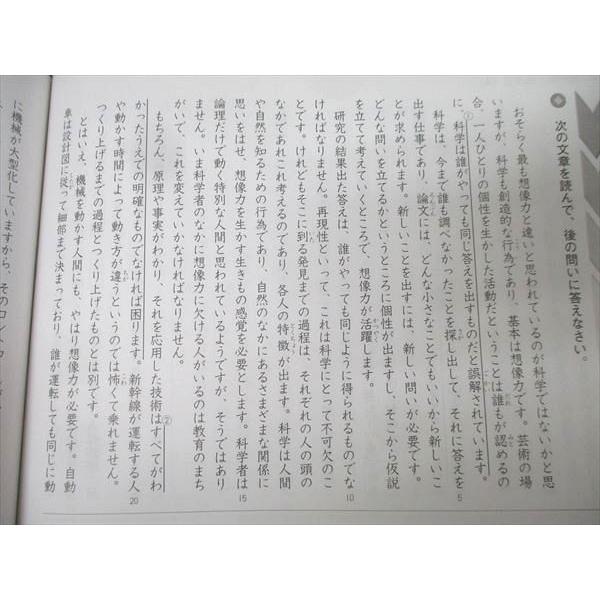 次の文章を読んで、後の問いに答えなさい。
おそらく最も想像力と遠いと思われているのが科学ではないかと思
いますが、科学も創造的な行為であり、基本は想像力です。芸術の場
合、一人ひとりの個性を生かした活動だということは誰もが認めるの
に、①科学は誰がやっても同じ答えを出すものだと誤解されています。
5
科学は、今まで誰も調べなかったことを探し出して、それに答えを
出す仕事であり、論文には、どんな小さなことでもいいから新しいこ
とが求められます。新しいことを出すには、新しい問いが必要です。
どんな問いを立てるかというところに個性が出ますし、そこから仮説
を立てて考えていくところで、想像力が活躍します。
10
研究の結果出た答えは、誰がやっても同じように得られるものでな
ければなりません。再現性といって、これは科学にとって不可欠のこ
とです。けれどもそこに到る発見までの過程は、それぞれの人の頭の
なかであれこれ考えるのであり、各人の特徴が出ます。科学は人間
や自然を知るための行為であり、自然のなかにあるさまざまな関係に
15
思いをはせ、想像力を生かす生きもの感覚を必要とします。科学者は
論理だけで動く特別な人間と思われているようですが、そうではあり
ません。いま科学者のなかに想像力に欠ける人がいるのは教育のまち
がいで、これを変えていかなければなりません。
もちろん、原理や事実がわかり、それを応用した技術は②すべてがわ
20
かったうえでの明確なものでなければ困ります。新幹線が運転する人
や動かす時間によって動き方が違うというのでは怖くて乗れません。
つくり上げるまでの過程とつくり上げたものとは別です。
とはいえ、機械を動かす人間にも、やはり想像力が必要です。自動
車は設計図に従って細部まで決まっており、誰が運転しても同じに動
に機械が大型化していますから、そのコント